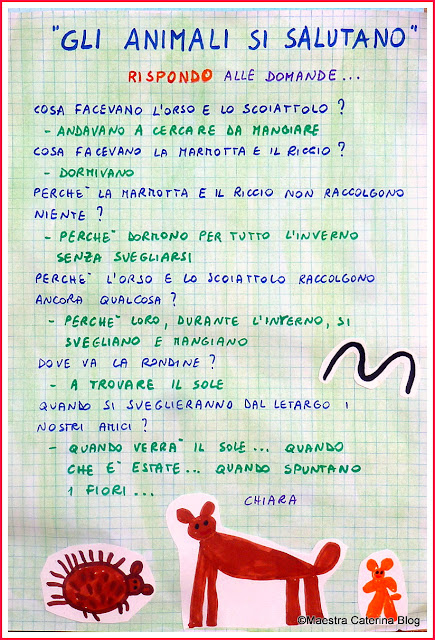 "GLI ANIMALI SI SALUTANO"
RISPONDO ALLE DOMANDE...
COSA FACEVANO L'ORSO E LO SCOIATTOLO?
- ANDAVANO A CERCARE DA MANGIARE
COSA FACEVANO LA MARMOTTA E IL RICCIO?
- DORMIVANO
PERCHE` LA MARMOTTA E IL RICCIO NON RACCOLGONO
NIENTE?
- PERCHE` DORMONO PER TUTTO L'INVERNO
SENZA SVEGLIARSI
PERCHE` L'ORSO E LO SCOIATTOLO RACCOLGONO
ANCORA QUALCOSA?
- PERCHE` LORO, DURANTE L'INTERNO, SI
SVEGLIANO E MANGIANO
DOVE VA LA RONDINE?
- A TROVARE IL SOLE
QUANDO SI SVEGLIERANNO DAL LETARGO I
NOSTRI AMICI?
- QUANDO VERRA` IL SOLE... QUANDO
CHE E` ESTATE... QUANDO SPUNTANO
I FIORI...
CHIARA
©Maestra Caterina Blog